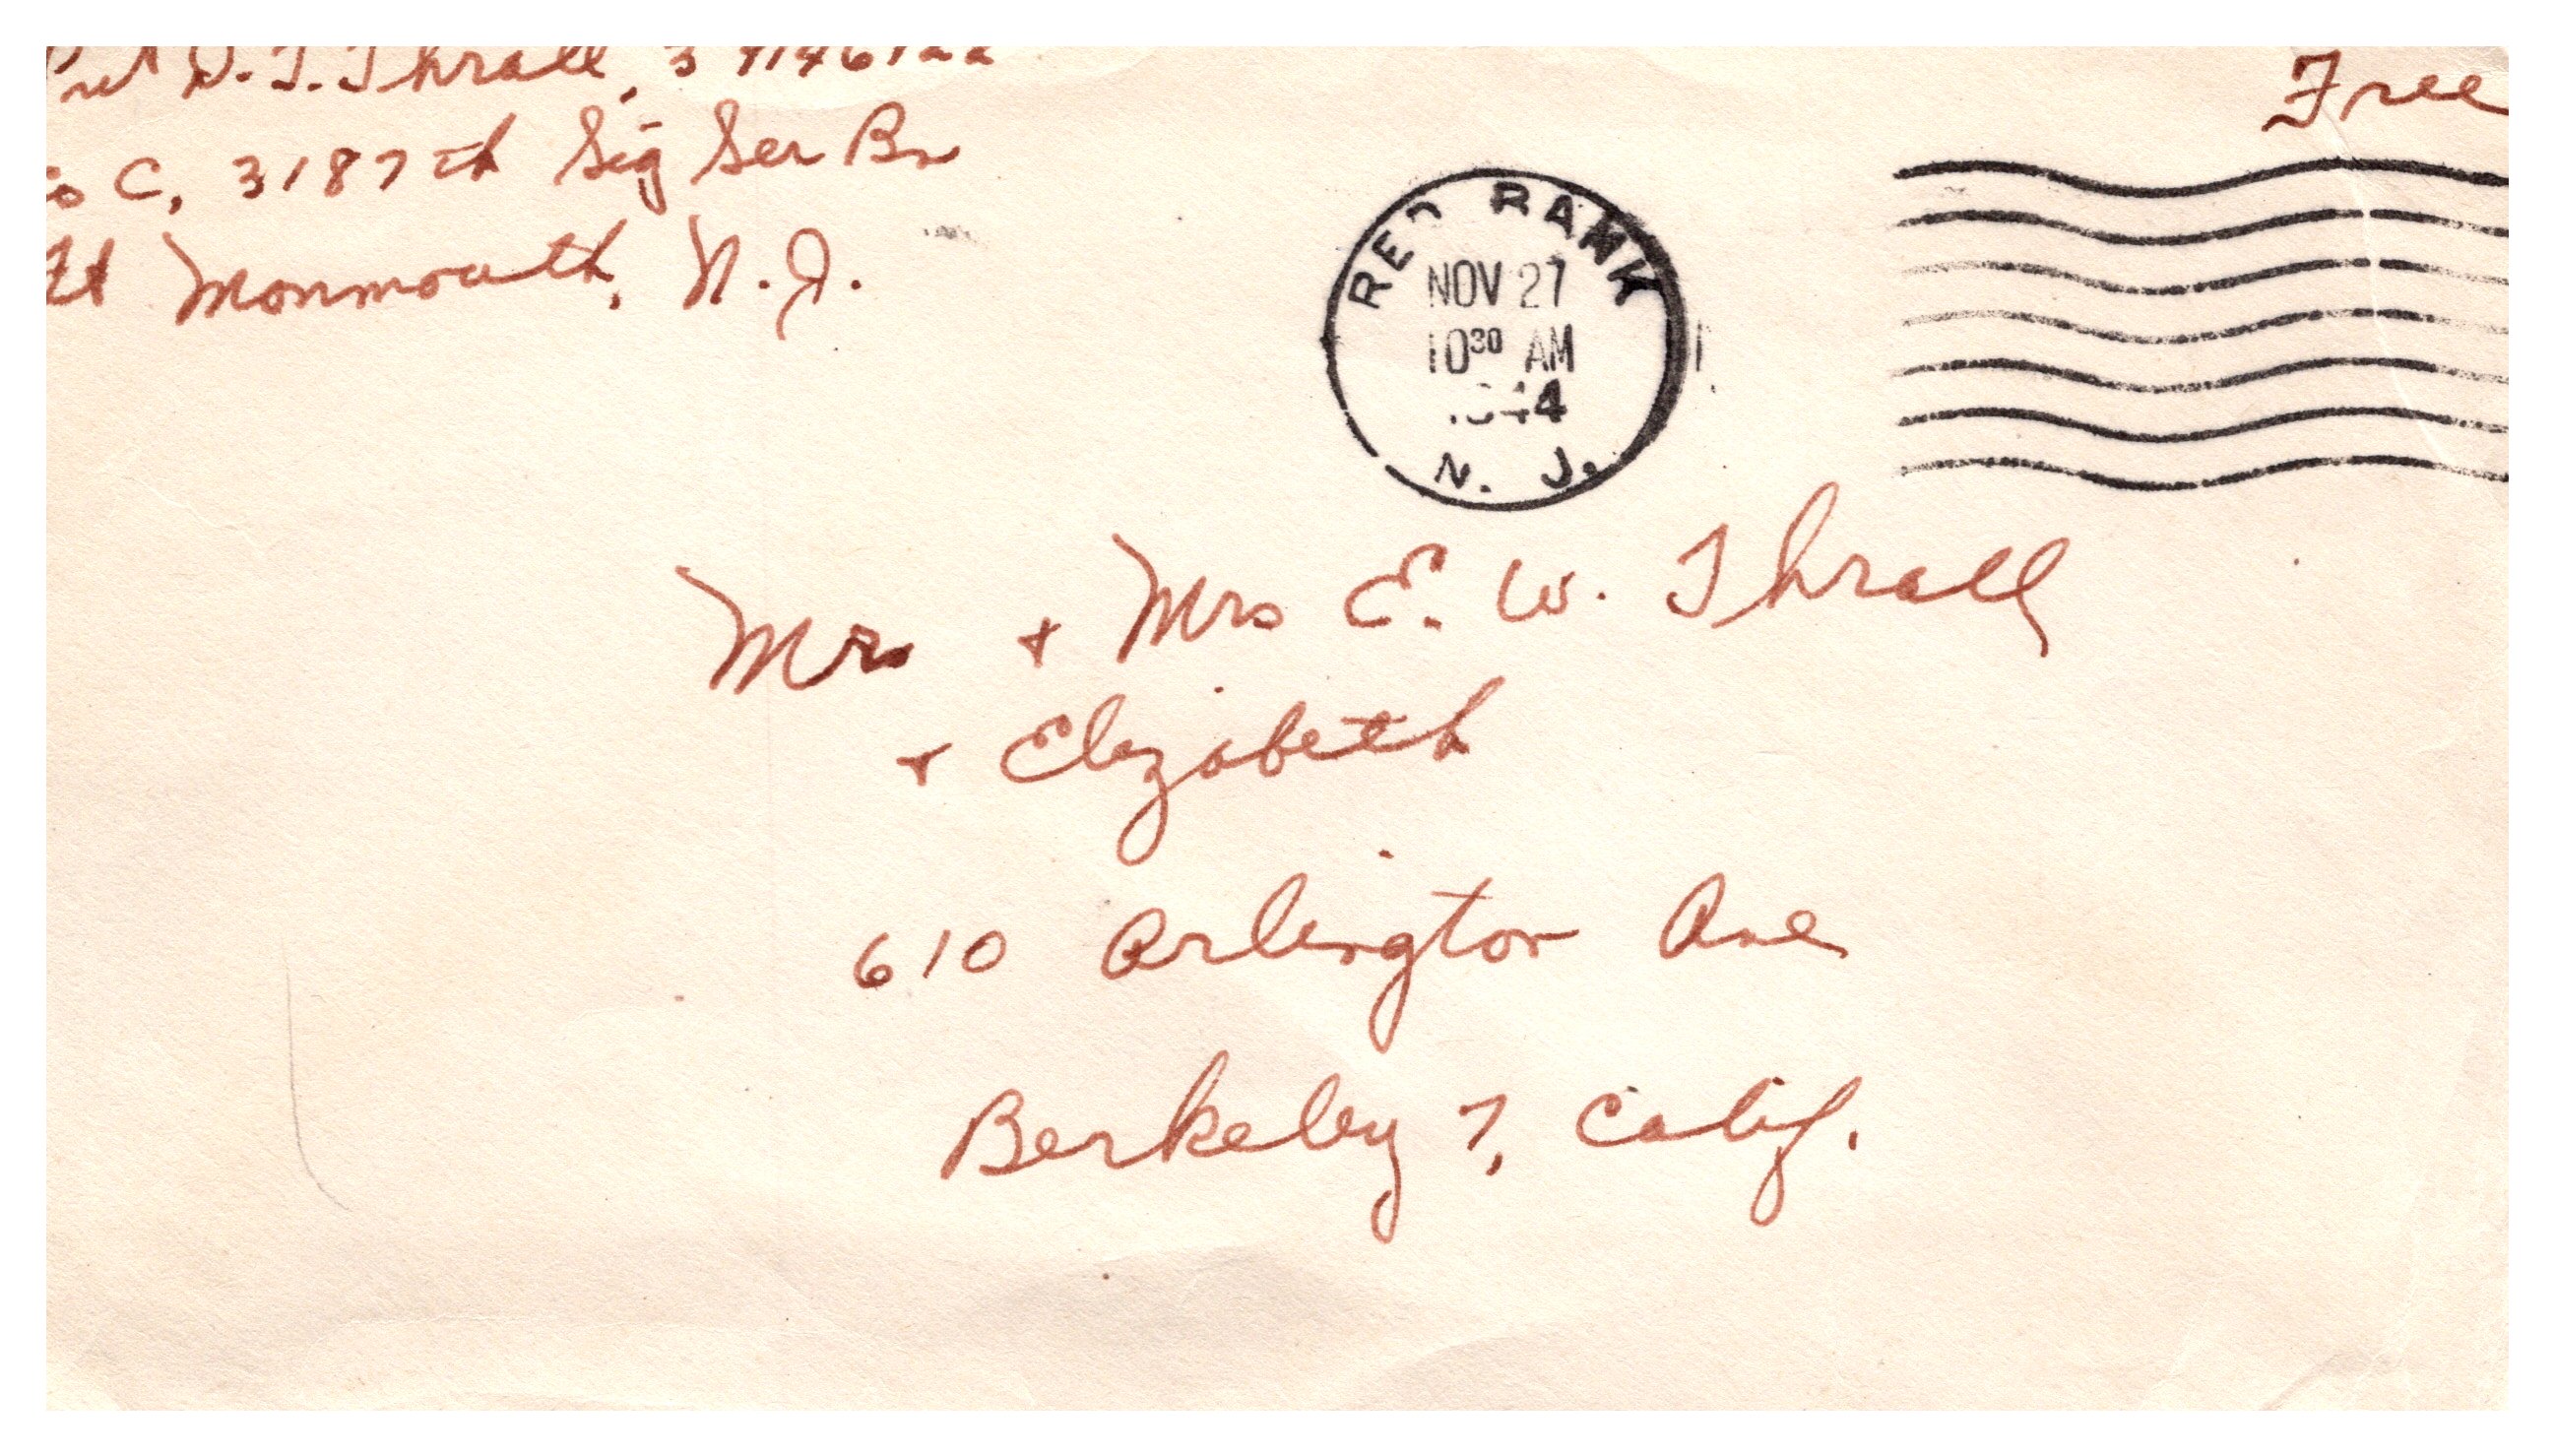 Pvt D. T. Thrall,
Co C, 3187th Sig Ser Bn
Ft Monmouth, N.J.
Free
RED BANK
NOV 27
10 30 AM
1944
N. J.
Mr + Mrs E. W. Thrall
+ Elizabeth
610 Arlington Ave
Berkeley 7, Calif.